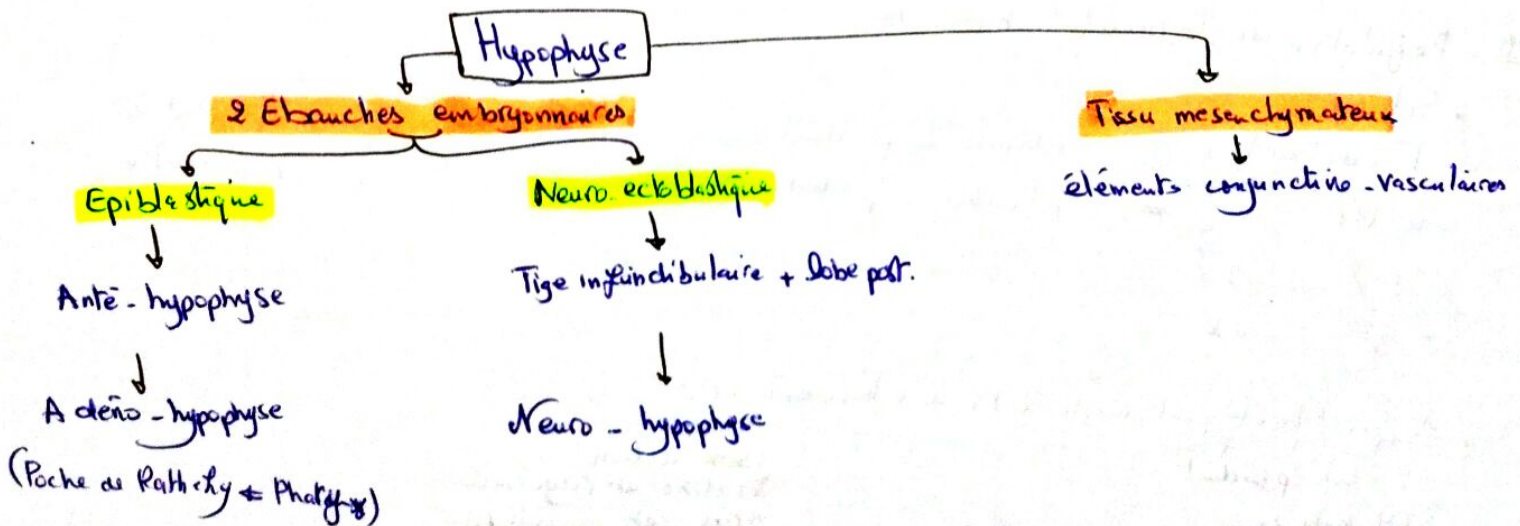 Hypophyse
2 Ebauches embryonnaires
Tissu mesenchymateux
Epiblastique
Neuro-ectoblastique
éléments conjonctivo-vasculaires
Anté-hypophyse
Tige infundibulaire + lobe post.
Adéno-hypophyse
Neuro-hypophyse
(Poche de